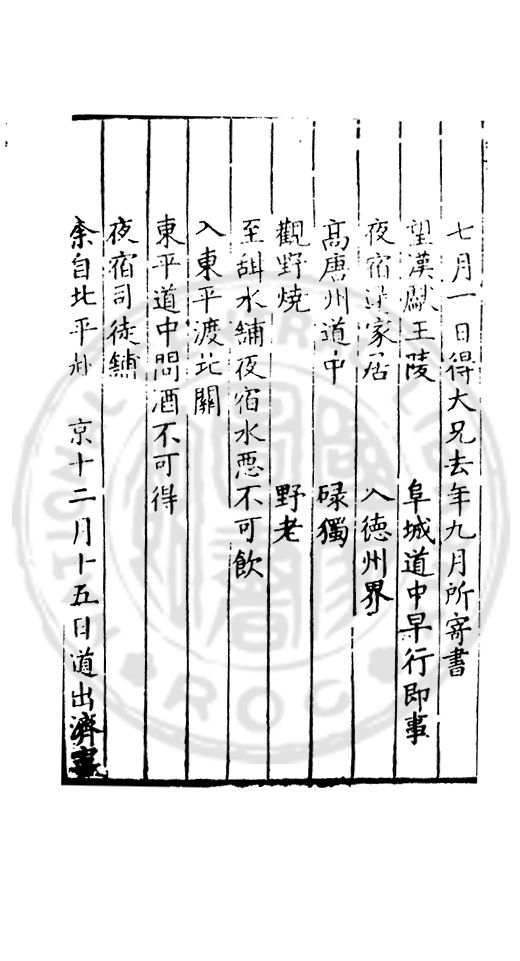 七月一日得大兄去年九月所寄書
望漢獻王陵 阜城道中早行即事
夜宿 家店 入德州界
高唐州道中 碌獨
觀野燒 野老
至甜水鋪夜宿水惡不可飲
入東平渡北關
東平道中問酒不可得
夜宿司徒鋪
自北平 京十二月十五日道出濟